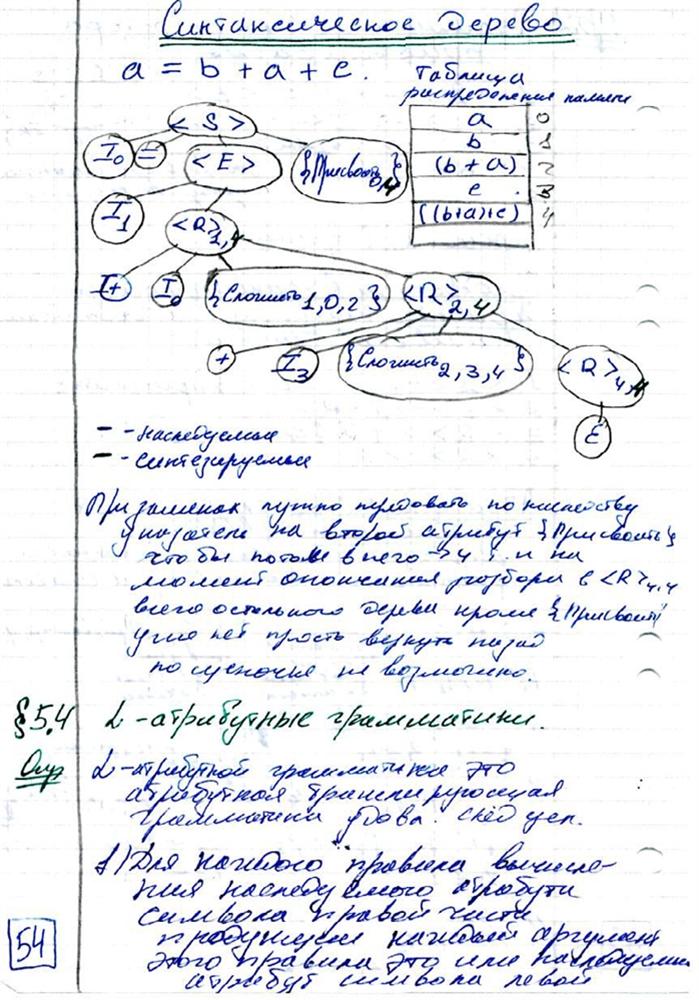 Синтаксическое дерево
a = b + a + c.
Таблица
распределения памяти
a 0
b
(b + a) 2
c 3
((b+a)+c) 4
<S>
I₀ = <E> {Присвоить0,4}
I₁ <R>1,4
+ I₀ {Сложить1,0,2} <R>2,4
+ I₃ {Сложить2,3,4} <R>4,4
ε
- - наследуемые
- - синтезируемые
При заменах нужно передовать по наследству
указатель на второй атрибут {Присвоить}
чтобы потом в него → 4 т. к на
момент окончания разбора в <R>4,4
всего остального дерева кроме {Присвоить}
уже нет просто вернуть назад
по цепочке не возможно.
§5.4 L-атрибутные грамматики.
Опр L-атрибутной грамматика это
атрибутная транслирующая
грамматика удова. след усл.
1) Для каждого правила вычисле-
ния наследуемого атрибута
символа правой части
продукции каждый аргумент
этого правила это или наследуемый
атрибут символа левой
54